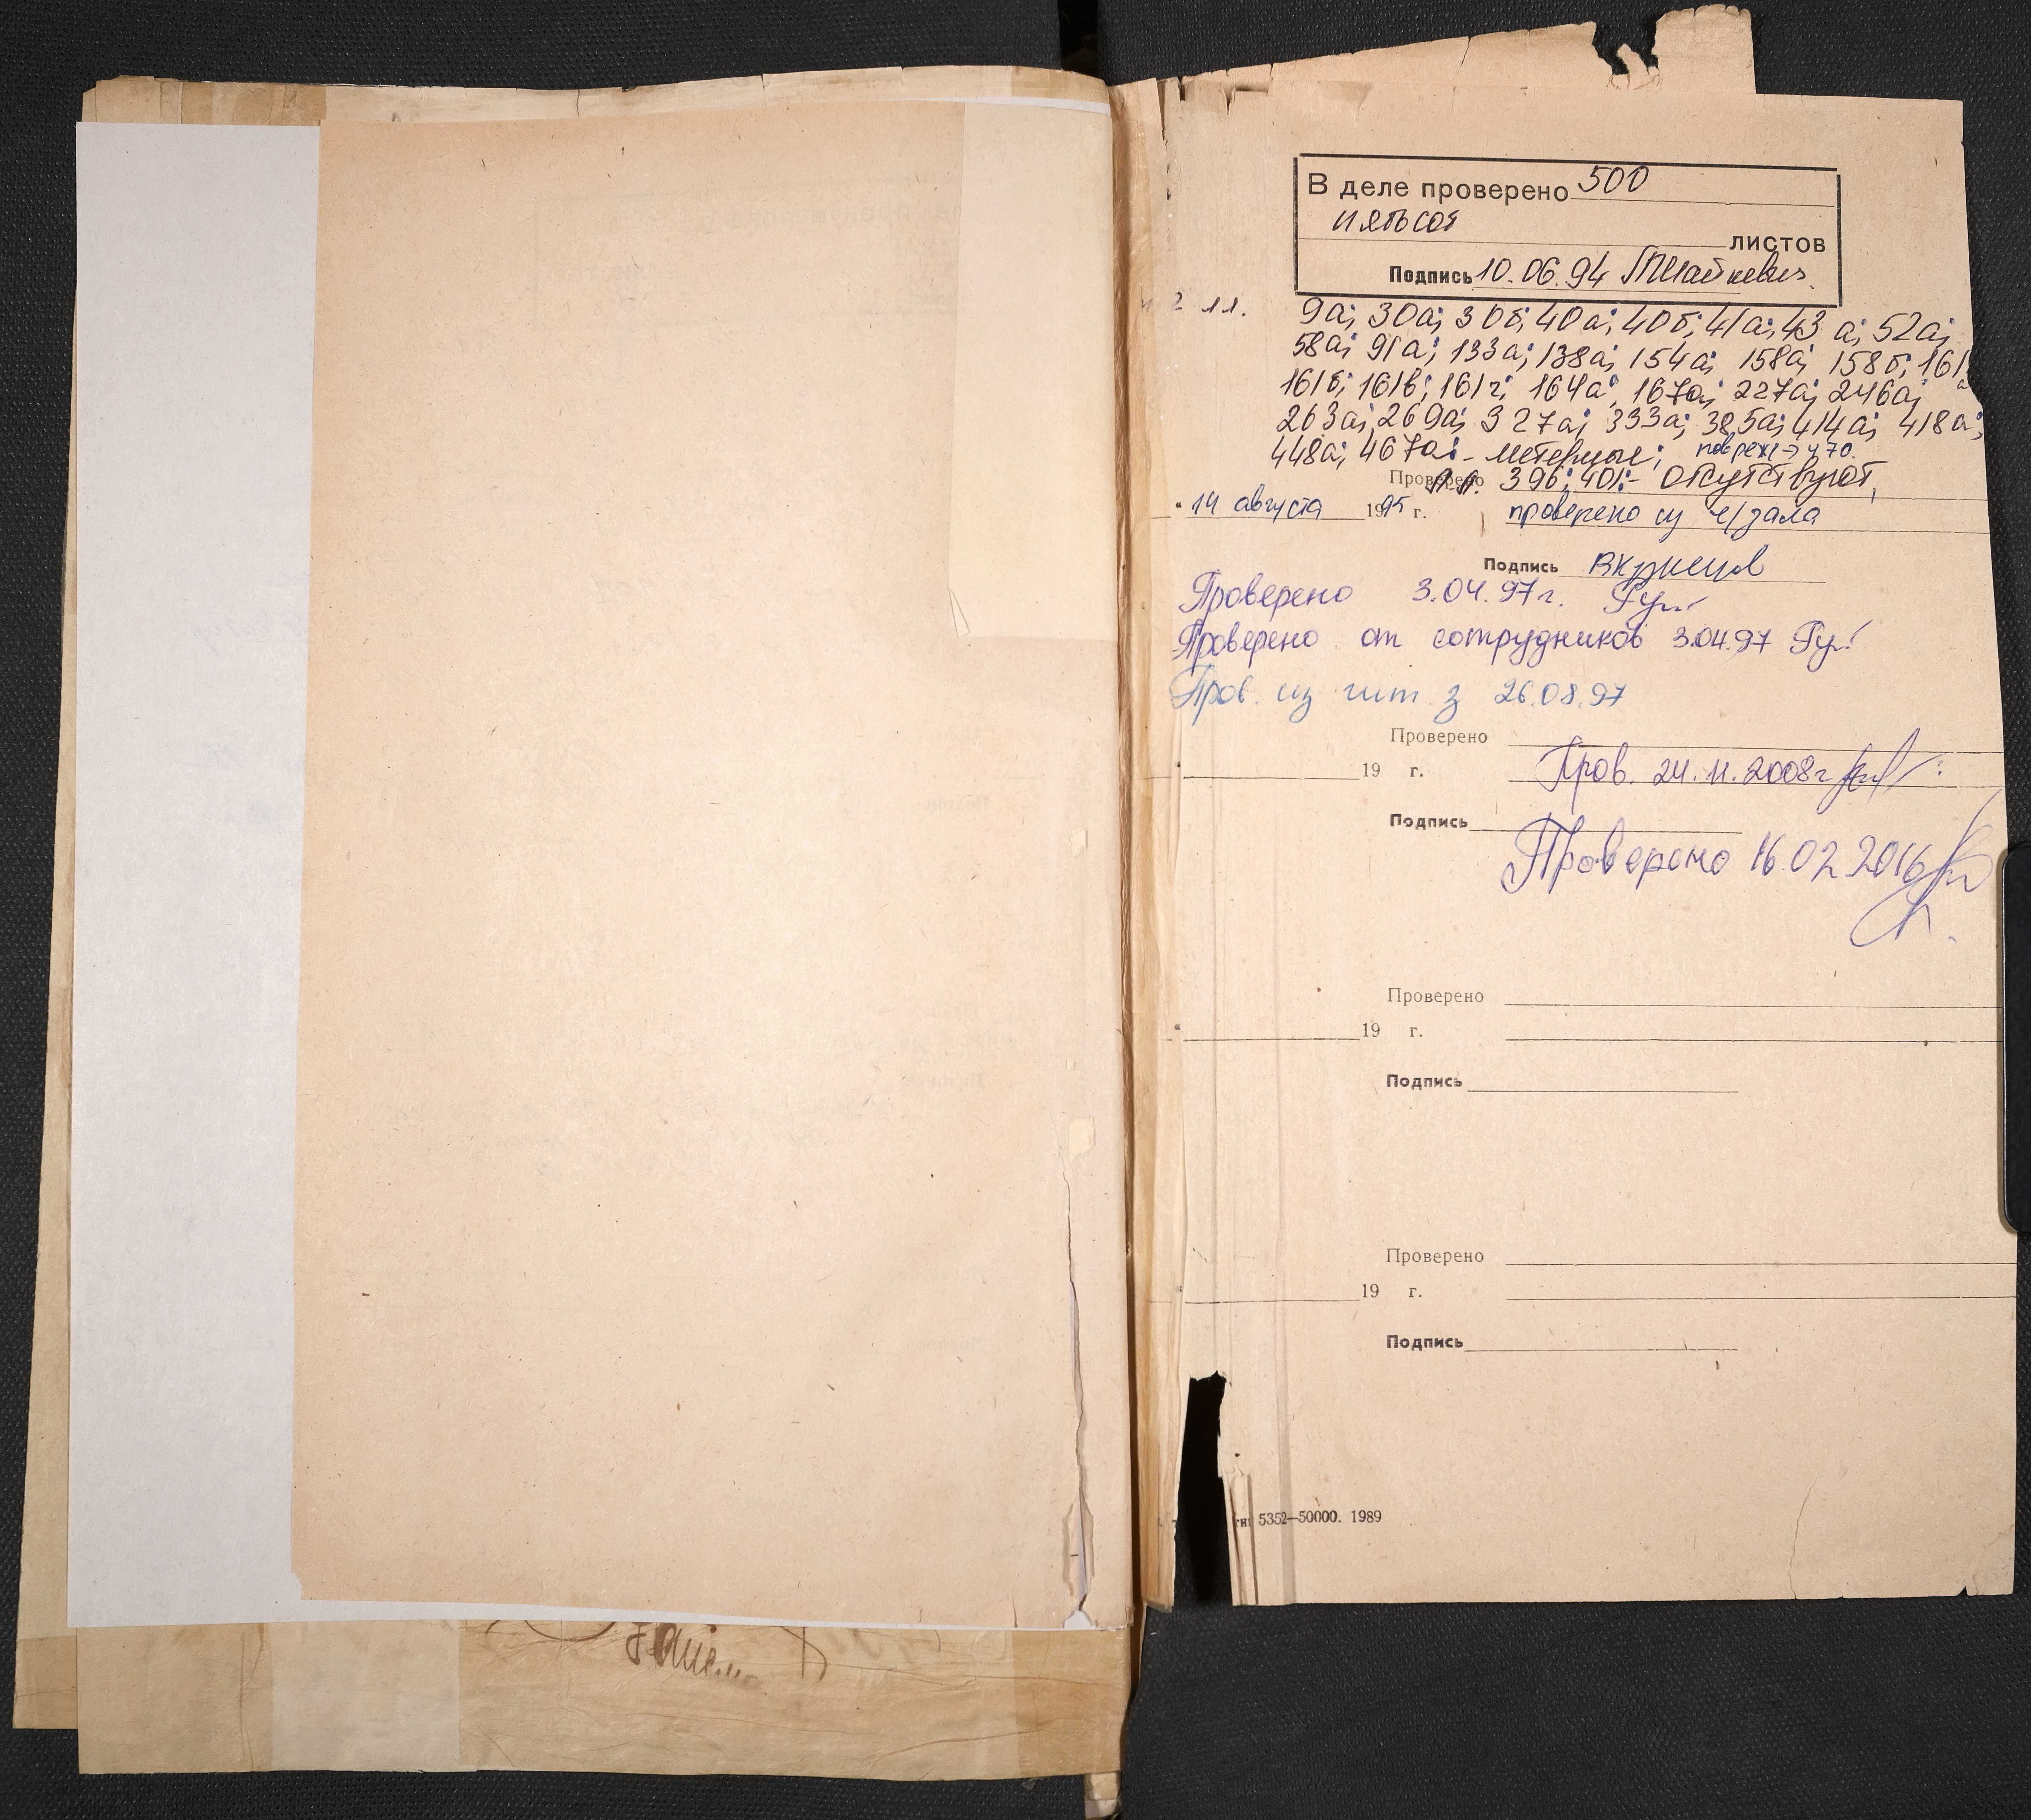 В деле проверено 500
пятьсот
листов
Подпись 10.06.94
2 лл. 9а; 30а; 30б; 40а; 40б; 41а; 43а; 52а;
58а; 91а; 133а; 138а; 154а; 158а; 158б; 161а
161б; 161в; 161г; 164а; 167а; 227а; 246а;
263а; 269а; 327а; 333а; 385а; 414а; 418а;
448а; 467а - литерные; 470.
Проверено л.л. 396; 401 - отсутствуют,
" 14 августа 1995 г. проверено из ч/зала
Подпись
Проверено 3.04.97г.
Проверено от сотрудников 3.04.97
Пров. из чит. з 26.08.97
Проверено
19 г. Пров. 24.11.2008г
Подпись
Проверено 16.02.2016
Проверено
" 19 г.
Подпись
Проверено
" 19 г.
Подпись
5352—50000. 1989